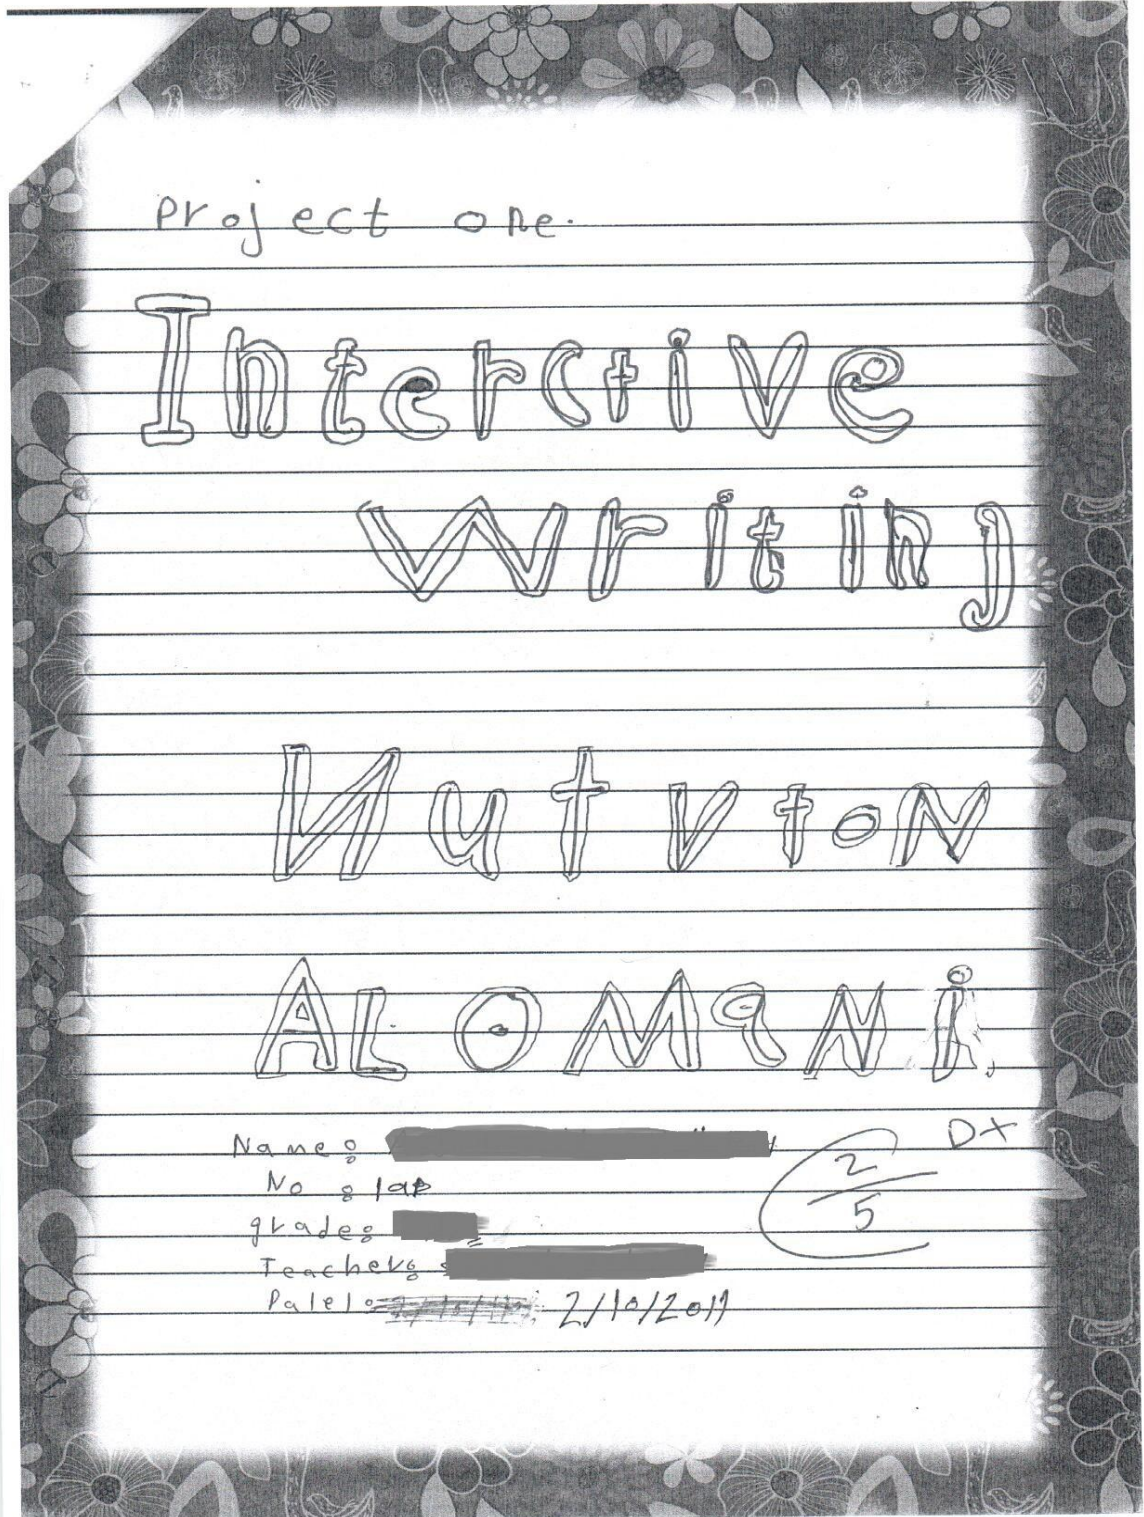 Project one.
Interctive
Writing
Nutvton
ALOMaNi
Name:
No :
grade:
Teacher:
2/10/2011
D+
2/5